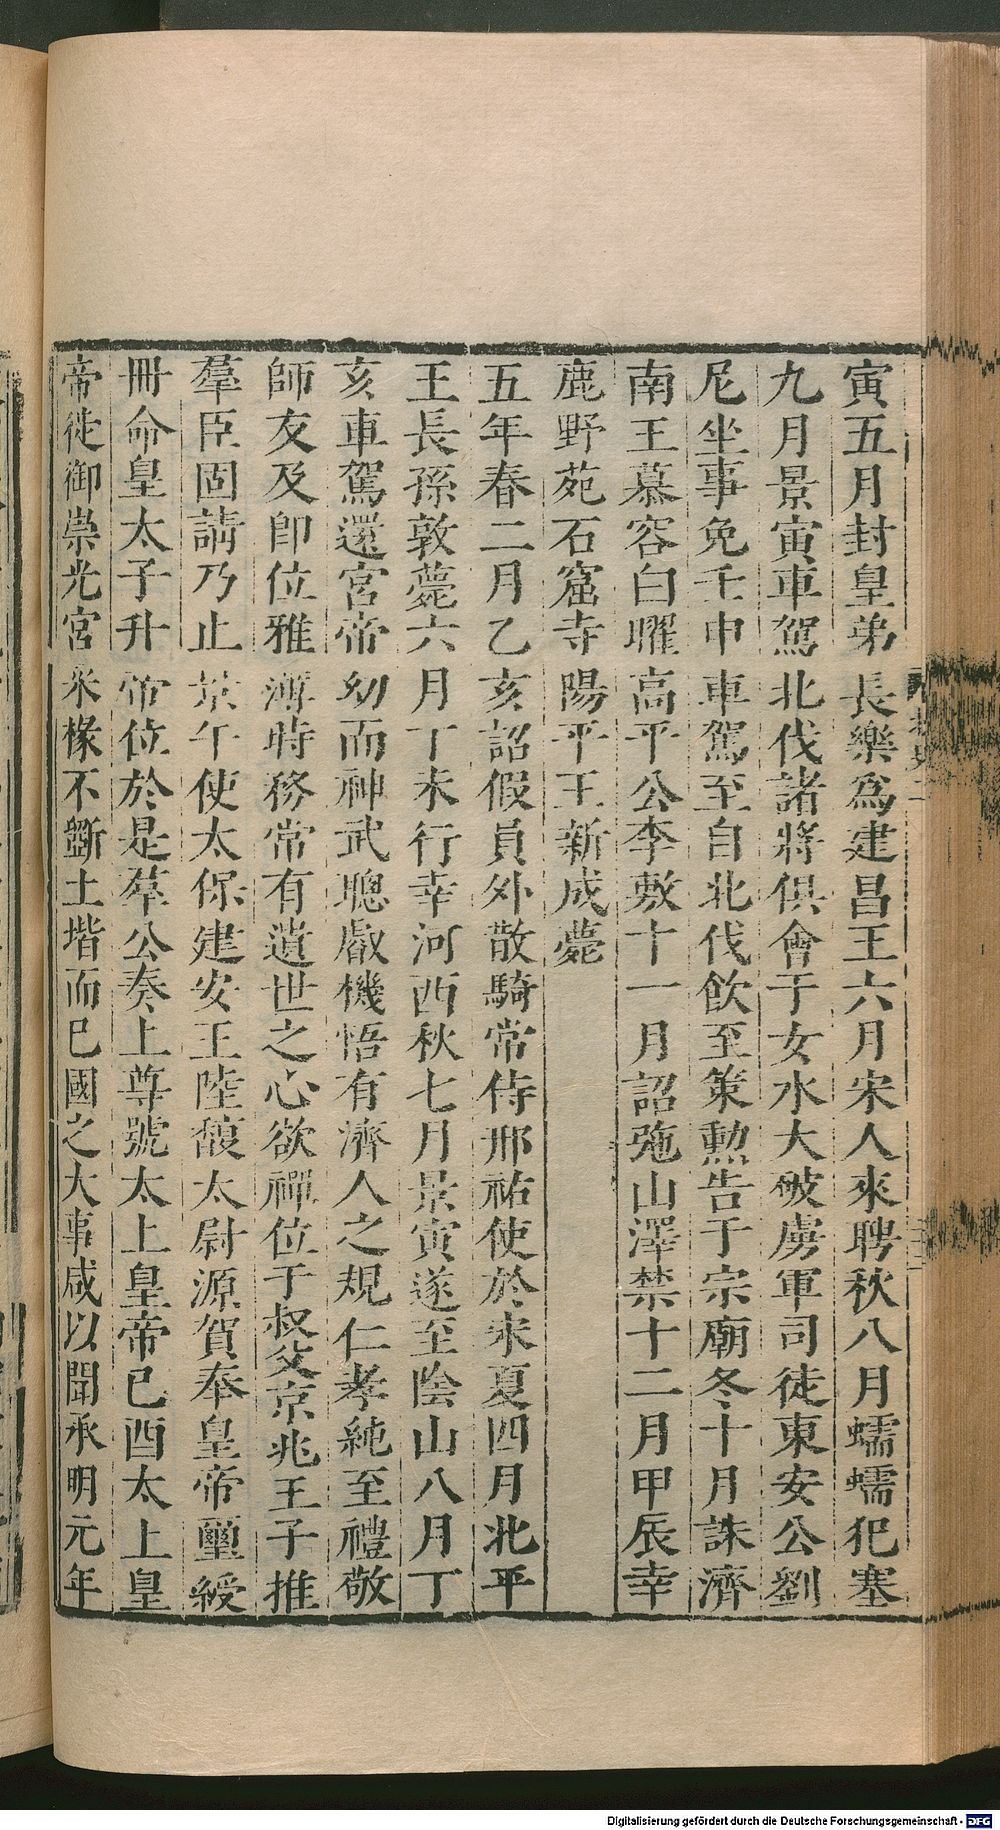 寅五月封皇弟長樂爲建昌王六月宋人來聘秋八月蠕蠕犯塞
九月景寅車駕北伐諸將俱會于女水大破虜軍司徒東安公劉
尼坐事免壬申車駕至自北伐飲至策勲告于宗廟冬十月誅濟
南王慕容白曜高平公李敷十一月詔弛山澤禁十二月甲辰幸
鹿野苑石窟寺陽平王新成薨
五年春二月乙亥詔假員外散騎常侍邢祐使於宋夏四月北平
王長孫敦薨六月丁未行幸河西秋七月景寅遂至陰山八月丁
亥車駕還宮帝幼而神武聰叡機悟有濟人之規仁孝純至禮敬
師友及卽位雅薄時務常有遺世之心欲禪位于叔父京兆王子推
羣臣固請乃止景午使太保建安王陸馛太尉源賀奉皇帝璽綬
冊命皇太子升帝位於是羣公奏上尊號太上皇帝已酉太上皇
帝徙御崇光宮采椽不斷土堦而已國之大事咸以聞承明元年
Digitalisierung gefördert durch die Deutsche Forschungsgemeinschaft - DFG